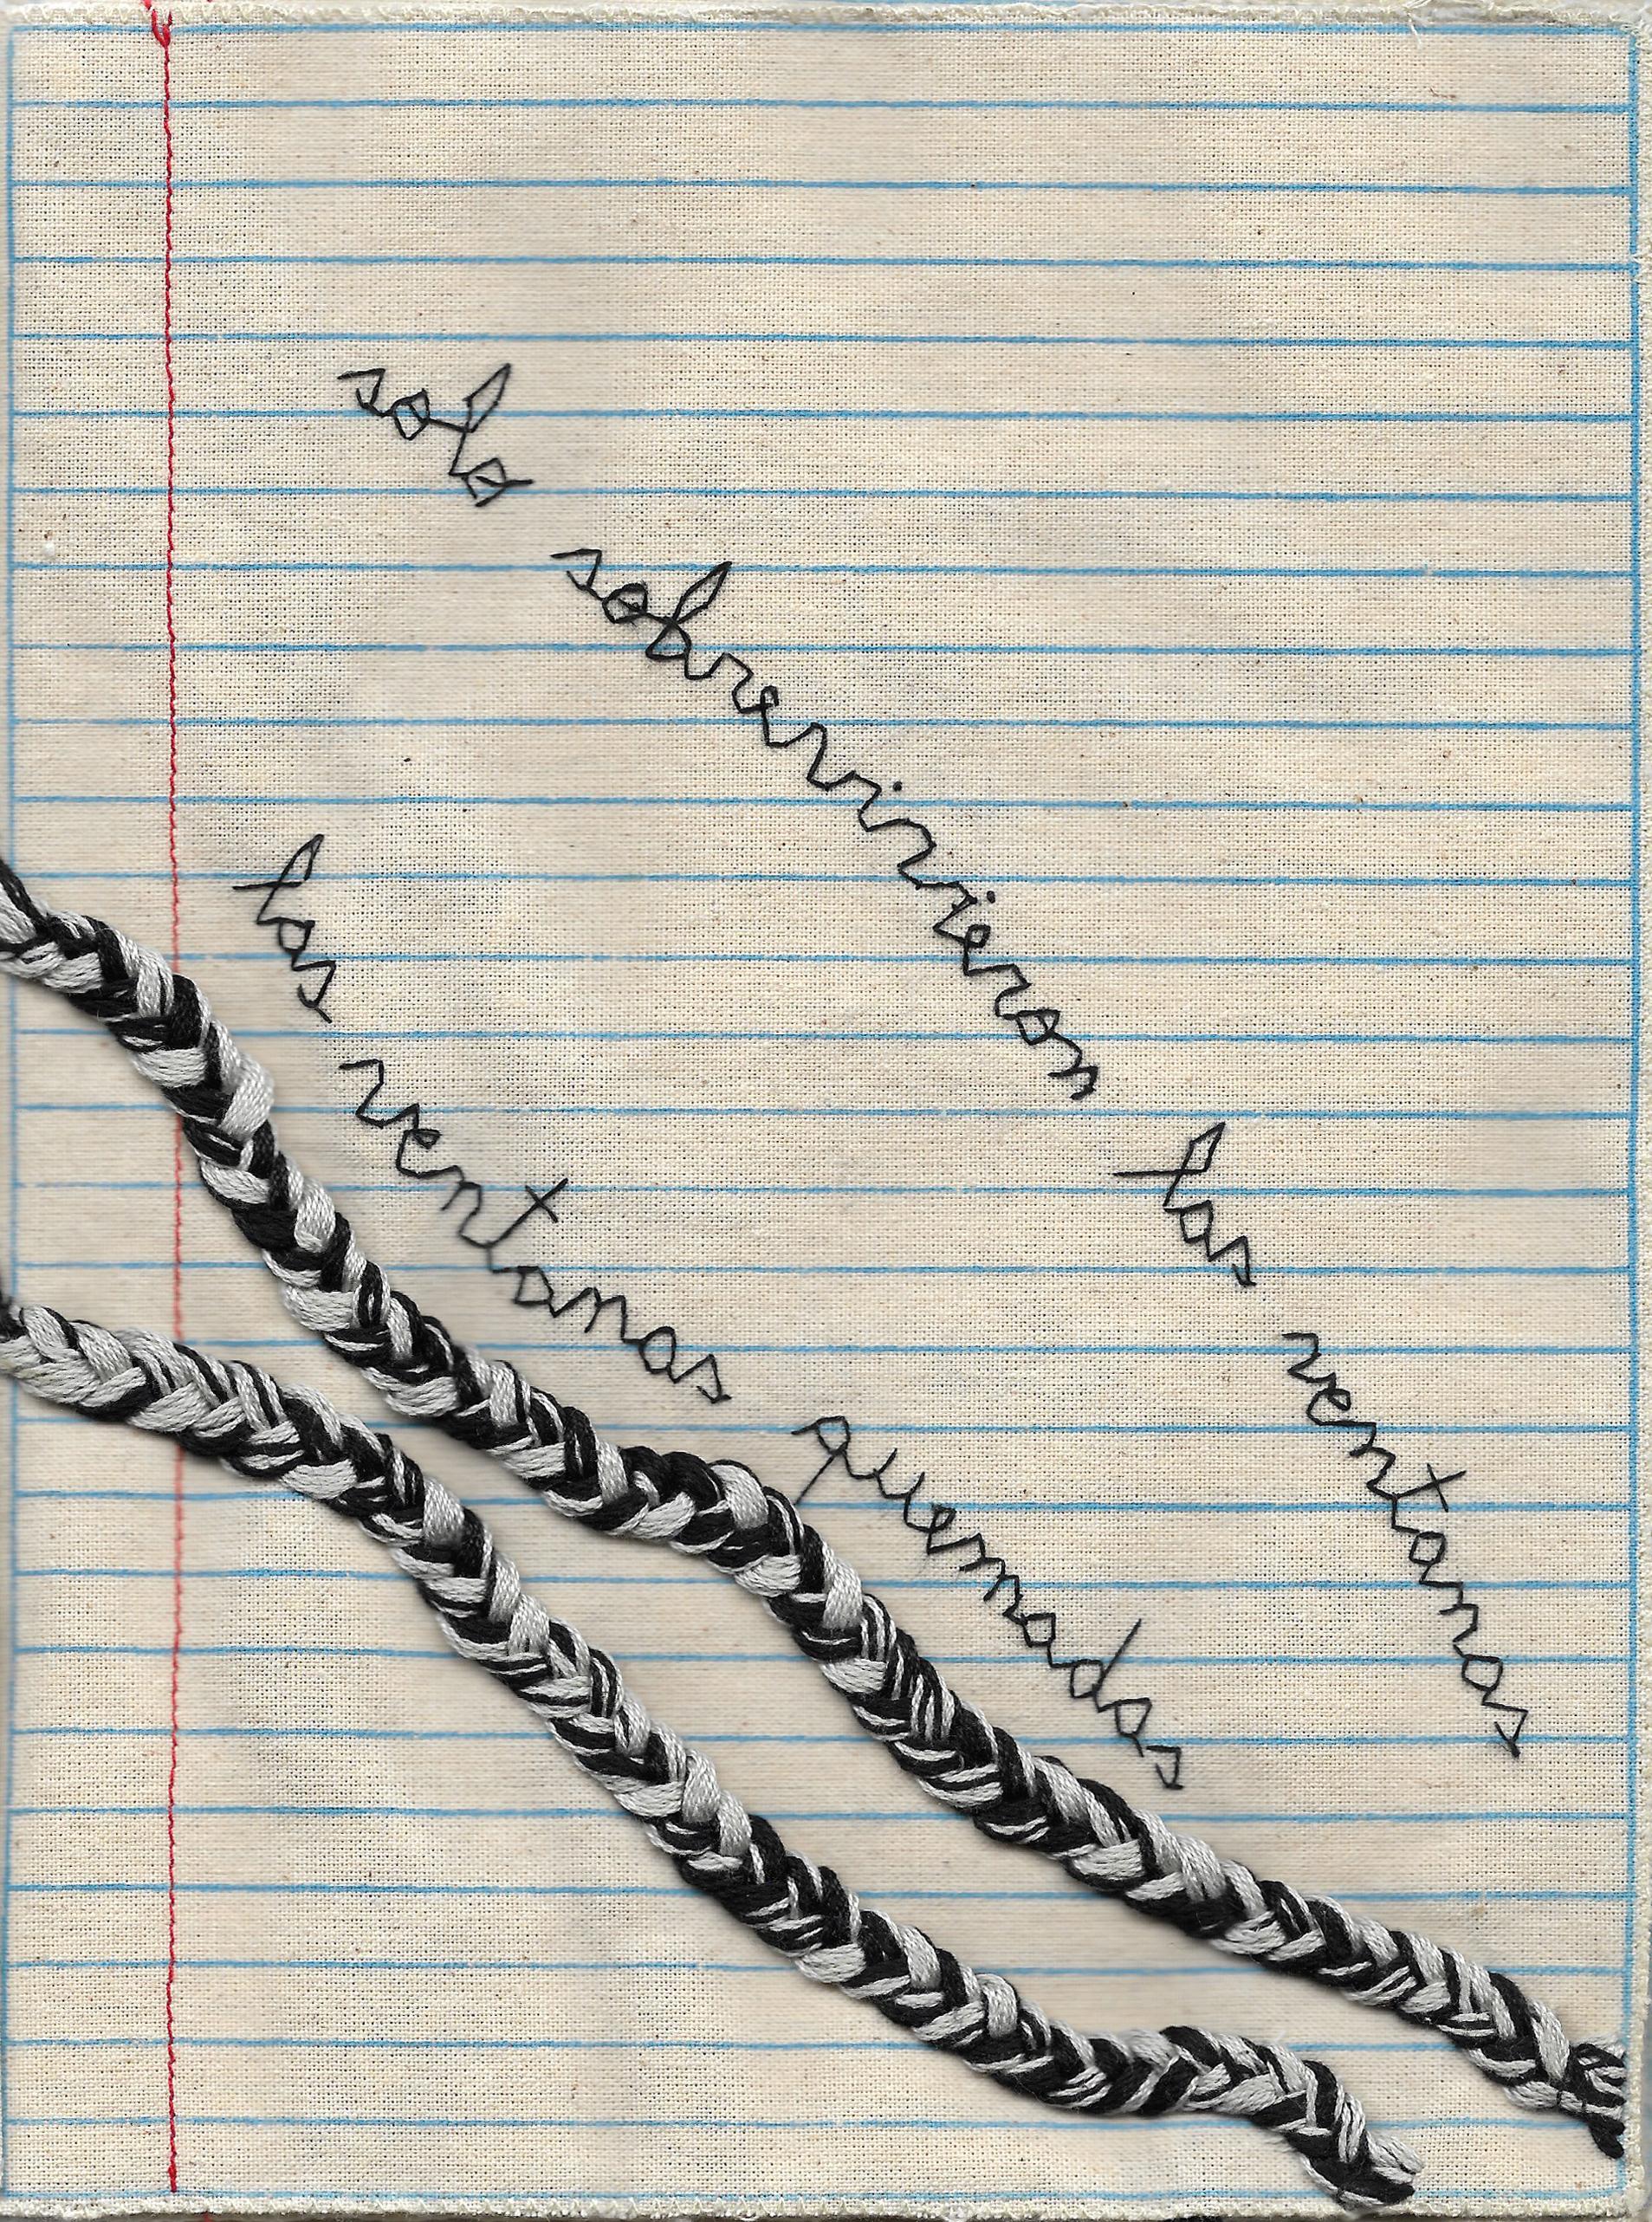 solo sobrevivieron las ventanas
las ventanas quemadas